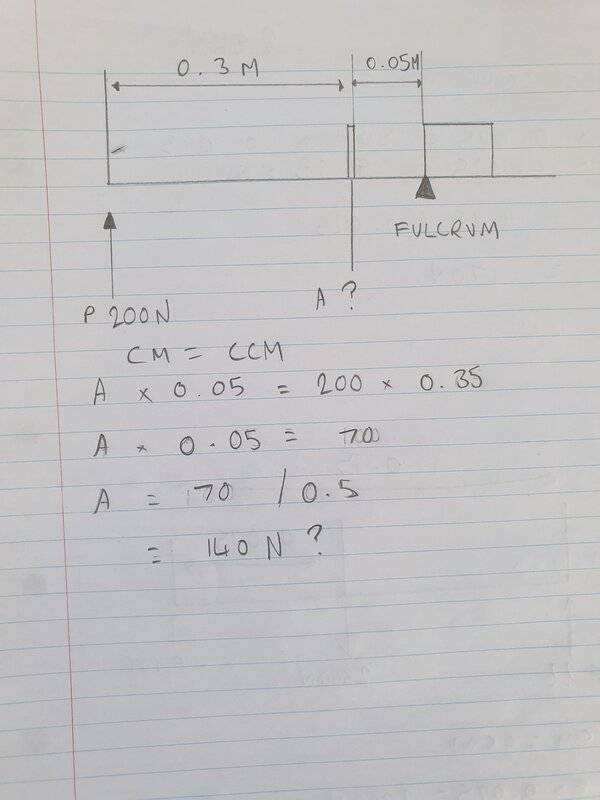 0.3 M
0.05M
FULCRUM
P 200N
A ?
CM = CCM
A × 0.05 = 200 × 0.35
A × 0.05 = 70
A = 70 / 0.5
= 140 N ?